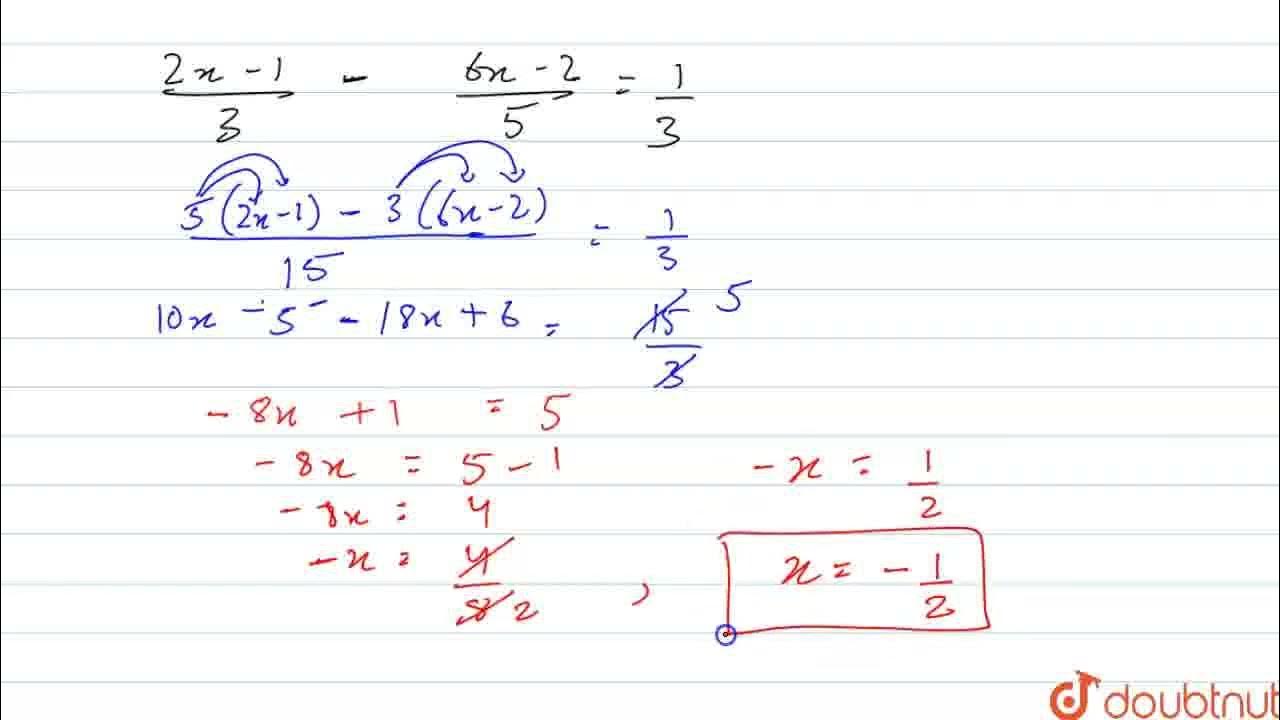 2x - 1 / 3 - 6x - 2 / 5 = 1 / 3
5(2x-1) - 3(6x-2) / 15 = 1 / 3
10x - 5 - 18x + 6 = 15 / 3 5
- 8x + 1 = 5
- 8x = 5 - 1
- 8x = 4
- x = 4 / 8 2 ,
- x = 1 / 2
x = - 1 / 2
doubtnut